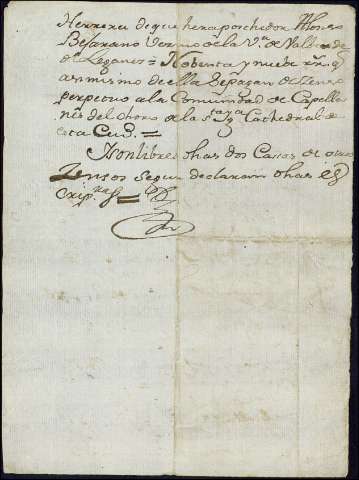 Herrera de que hera pohehedor Alonso
Bejarano Vezino de la Va. de Valde
de Leganes = Nobenta y nuebe rrs. q
asimismo de ella se pagan de Zenso
perpetuo a la Comunidad de Capella
nes del choro de la sta. yga Cathedral de
esta Ciud. =
Y son libres dhas dos Cassas de otros
Zensos segun declararon dhas es
Cripras =